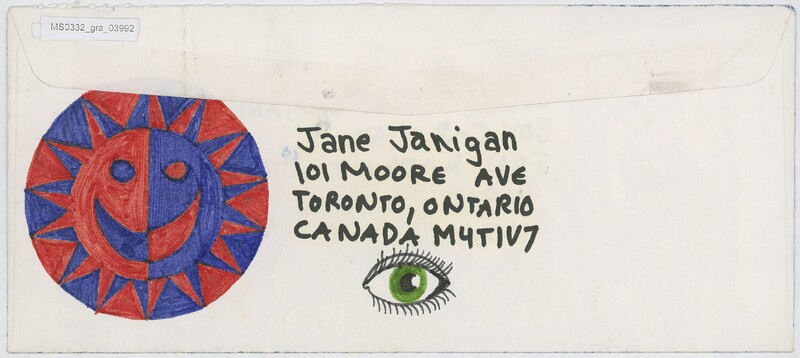 MS0332_gra_03992
Jane Janigan
101 MOORE AVE
TORONTO, ONTARIO
CANADA M4T1V7